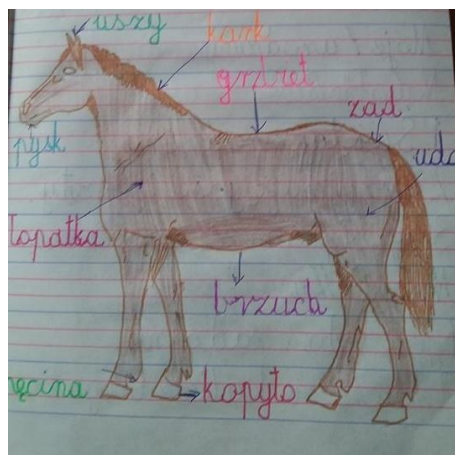 uszy
kark
grzbiet
zad
pysk
udo
łopatka
brzuch
ęcina
kopyto